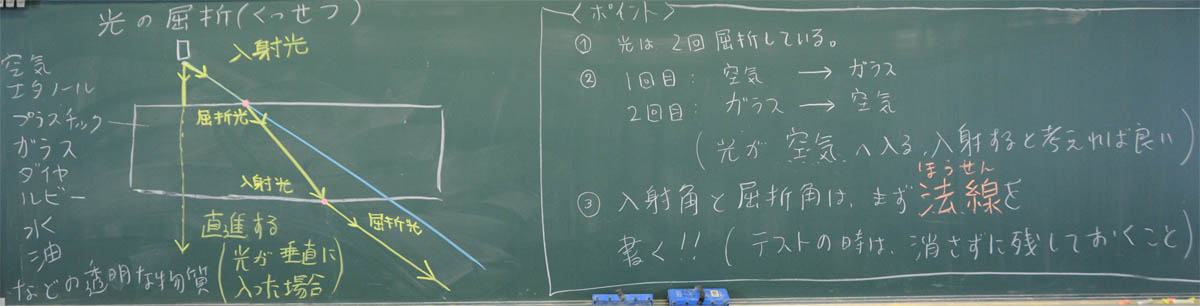 光の屈折(くっせつ)
空気
エタノール
プラスチック
ガラス
ダイヤ
ルビー
水
油
などの透明な物質
入射光
屈折光
入射光
屈折光
直進する
(光が垂直に
入った場合)
〈ポイント〉
① 光は2回屈折している。
② 1回目: 空気 → ガラス
2回目: ガラス → 空気
(光が空気へ入る、入射すると考えれば良い)
ほうせん
③ 入射角と屈折角は、まず法線を
書く!! (テストの時は、消さずに残しておくこと)